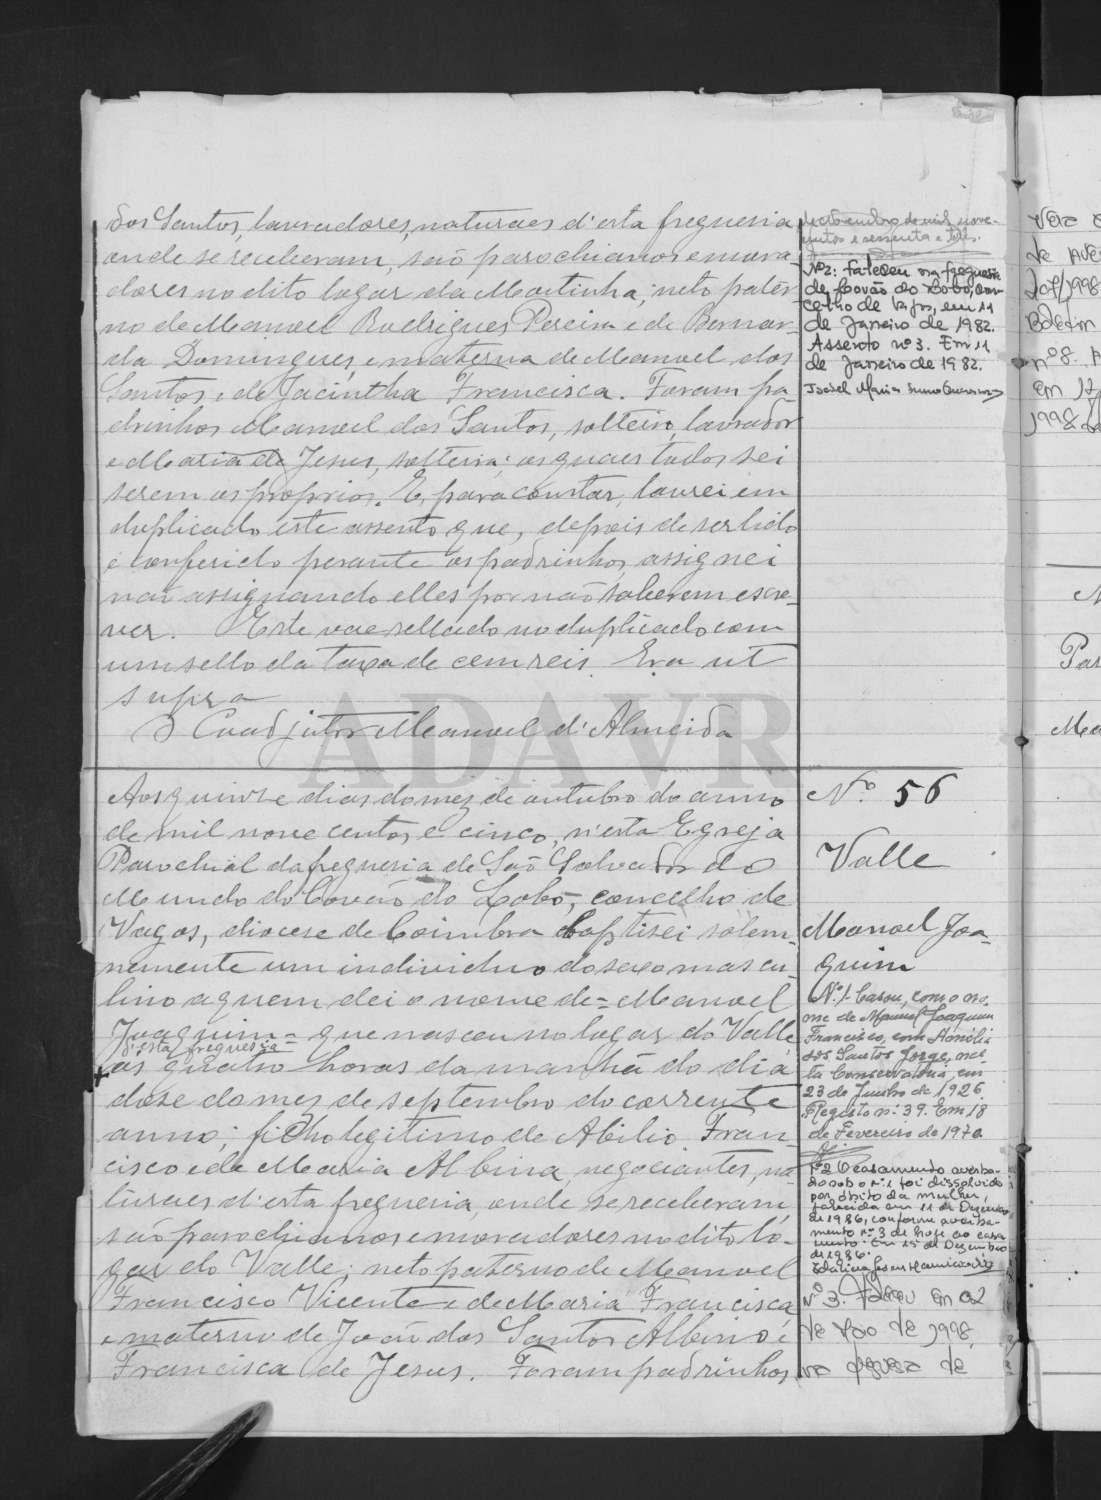 dos Santos, lavradores, naturaes d'esta freguesia
onde se receberam, são parochianos e mora
dores no dito logar da Martinha; neto pater
no de Manoel Rodrigues Pereira e de Bernar-
da Domingues, e materna de Manoel dos
Santos e de Jacintha Francisca. Foram pa
drinhos Manoel dos Santos, solteiro, lavrador
e Maria de Jesus, solteira; os quaes todos sei
serem os proprios. E, para constar, lavrei em
duplicado este assento que, depois de ser lido
e conferido perante os padrinhos, assignei
não assignando elles por não saberem escre-
ver. Este vae sellado no duplicado com
um sello da taxa de cem reis. Era ut
supra
O Coadjutor Manoel d'Almeida
Aos quinze dias do mez de outubro do anno
de mil nove centos e cinco, n'esta Egreja
Parochial da freguesia de São Salvador do
Mundo do Covão do Lobo, concelho de
Vagos, diocese de Coimbra baptisei solem-
nemente um individuo do sexo mascu-
lino a quem dei o nome de = Manoel
Joaquim = que nasceu no logar do Valle
d'esta freguesia
ás quatro horas da manhã do dia
dose do mez de septembro do corrente
anno; filho legitimo de Abilio Fran-
cisco e de Maria Albina, negociantes, na
turaes d'esta freguesia, onde se receberam,
são parochianos e moradores no dito lo-
gar do Valle; neto paterno de Manoel
Francisco Vicente e de Maria Francisca
e materno de João dos Santos Albino e
Francisca de Jesus. Foram padrinhos
de mil nove-
centos e sessenta e três.
Nº2: Faleceu na freguesia
de Covão do Lobo, con-
celho de Vagos, em 11
de Janeiro de 1982.
Assento nº 3. Em 11
de Janeiro de 1982.
Isabel Maria
Nº. 56
Valle
Manoel Joa-
quim
Nº1- Casou, com o no-
me de Manuel Joaquim
Francisco, com
dos Santos Jorge, nes-
ta Conservatória, em
23 de Junho de 1926.
Registo nº 39. Em 18
de Fevereiro de 1970
Nº2 O casamento averba-
do sob o nº 1 foi dissolvido
por óbito da mulher,
falecida em 11 de Dezembro
de 1986, conforme averba-
mento nº 3 de hoje ao casa
mento. Em 15 de Dezembro
de 1986.
Nº 3. Faleu em 02
de 1998
na de
de
1998
Boletim
nº 8.
em 12
1998
ADAVR